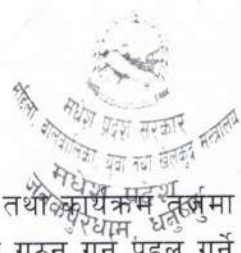 मधेश प्रदेश सरकार
महिला, बालबालिका, युवा तथा खेलकुद मन्त्रालय
मधेश प्रदेश
जनकपुरधाम, धनुषा
तथा कार्यक्रम तर्जुमा
गठन गर्न पहल गर्ने